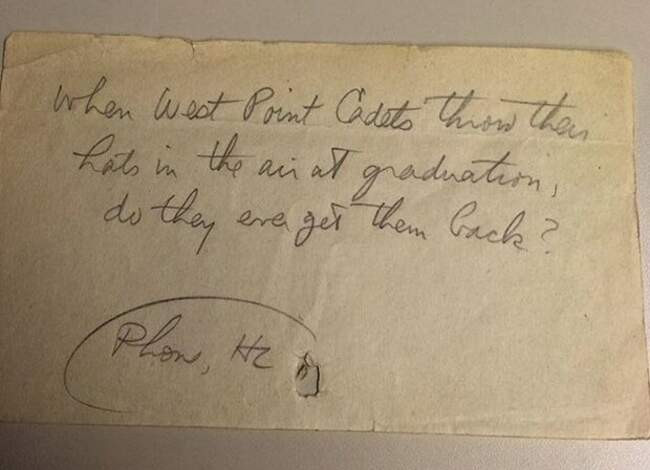 When West Point Cadets throw their
hats in the air at graduation,
do they ever get them back?
Phone, HZ